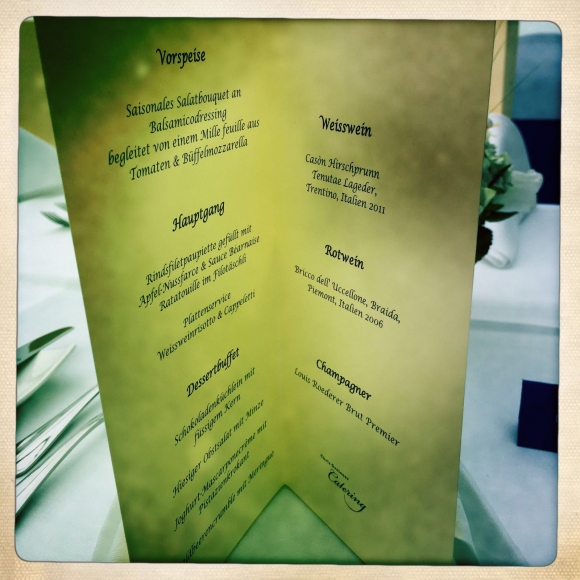 Vorspeise
Saisonales Salatbouquet an
Balsamicodressing
begleitet von einem Mille feuille aus
Tomaten & Büffelmozzarella
Hauptgang
Rindsfiletpaupiette gefüllt mit
Apfel-Nussfarce & Sauce Béarnaise
Ratatouille im Filotäschli
Plattenservice
Weissweinrisotto & Cappeletti
Dessertbuffet
Schokoladenküchlein mit
flüssigem Kern
Hiesiger Obstsalat mit Minze
Joghurt-Mascarponecrème mit
Pistazienkrokant
mit Meringue
Weisswein
Casòn Hirschprunn
Tenutae Lageder,
Trentino, Italien 2011
Rotwein
Bricco dell' Uccellone, Braida,
Piemont, Italien 2006
Champagner
Louis Roederer Brut Premier
Catering